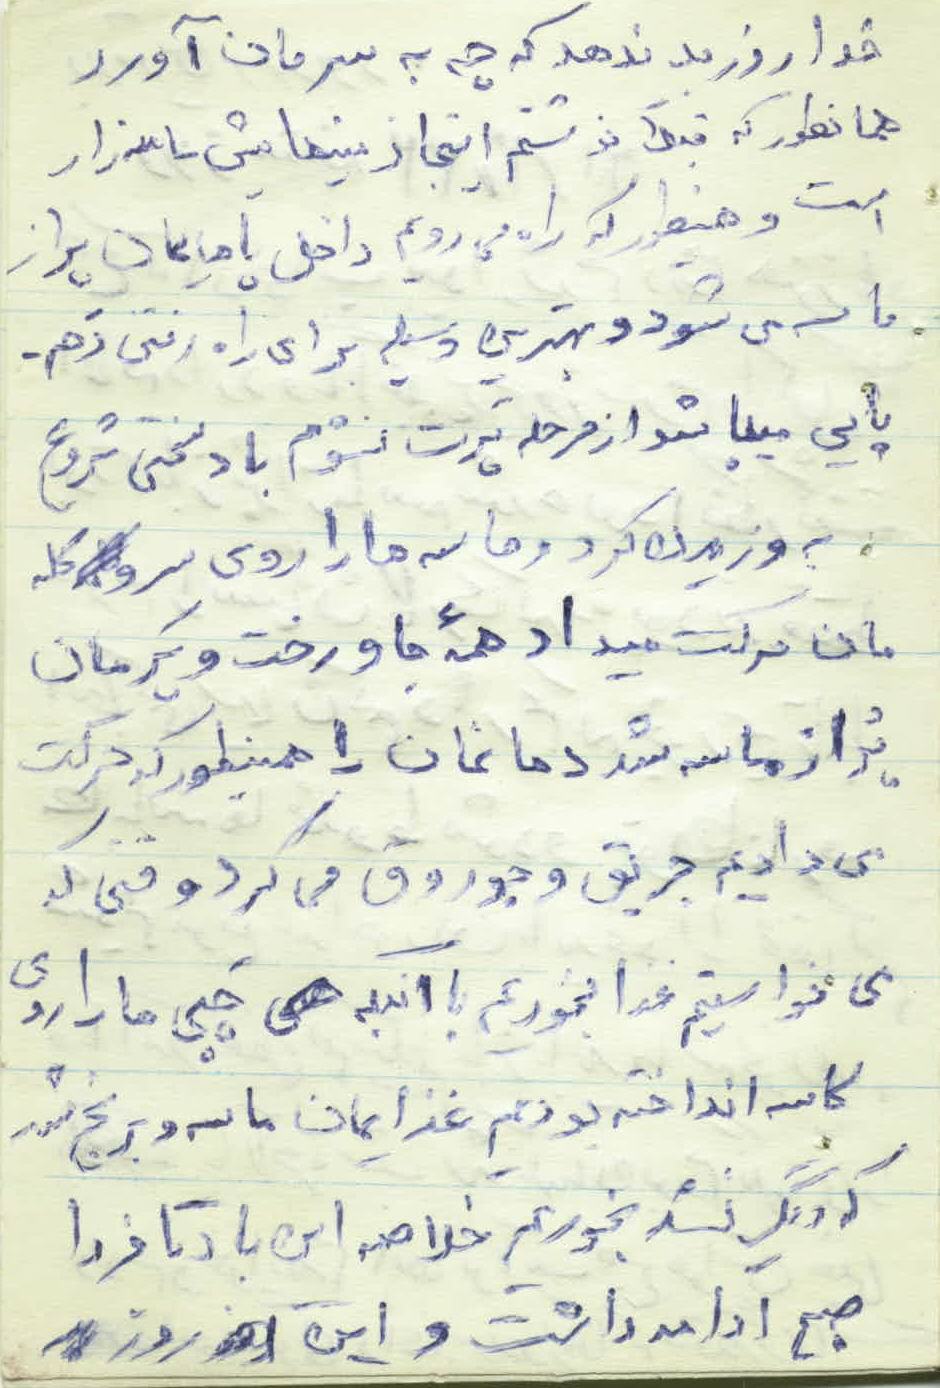 خدا روز بد ندهد که چه به سرمان آورد
همانطور که قبلاً نوشتم اینجا زمینهایش ماسه زار
است و همینطور که راه می رویم داخل پاهایمان پر از
ماسه می شود و بهترین وسیله برای راه رفتن
پایی میباشد از مرحله پرت نشوم باد سختی شروع
به وزیدن کرد و ماسه ها را روی سر و کله
مان حرکت میداد همهٔ جا و رخت و پکرمان
پر از ماسه شد دهانمان را همینطور که حرکت
می دادیم جریق و جوروق می کرد وقتی که
می خواستیم غذا بخوریم با آنکه چپی ها را روی
کاسه انداخته بودیم غذایمان ماسه و برنج شد
که دیگر نشد بخوریم خلاصه این باد تا فردا
صبح ادامه داشت و این روز